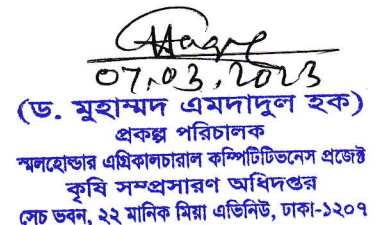 07.03.2023
(ড. মুহাম্মদ এমদাদুল হক)
প্রকল্প পরিচালক
স্মলহোল্ডার এগ্রিকালচারাল কম্পিটিটিভনেস প্রজেক্ট
কৃষি সম্প্রসারণ অধিদপ্তর
সেচ ভবন, ২২ মানিক মিয়া এভিনিউ, ঢাকা-১২০৭